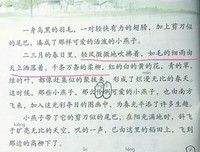 一身乌黑的羽毛，一对轻快有力的翅膀，加上剪刀似
的尾巴，凑成了那样可爱的活泼的小燕子。
二三月的春日里，轻风微微地吹拂着，如毛的细雨由
天上洒落着，千条万条的柔柳，红的白的黄的花，青的草，
绿的叶，都像赶集似的聚拢来，形成了烂漫无比的春天。
这时候，那些小燕子，那么伶俐可爱的小燕子，也由南方
飞来，加入这光彩夺目的图画中，为春光平添了许多生趣。
小燕子带了它的剪刀似的尾巴，在阳光满地时，斜飞
于旷亮无比的天空，叽的一声，已由这里的稻田上，飞到
那边的高柳下了。